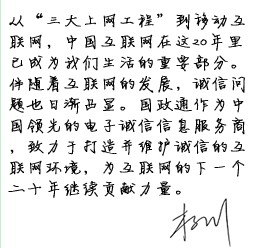 从“三大上网工程”到移动互
联网，中国互联网在这20年里
已成为我们生活的重要部分。
伴随着互联网的发展，诚信问
题也日渐凸显。国政通作为中
国领先的电子诚信信息服务商
，致力于打造并维护诚信的互
联网环境，为互联网的下一个
二十年继续贡献力量。